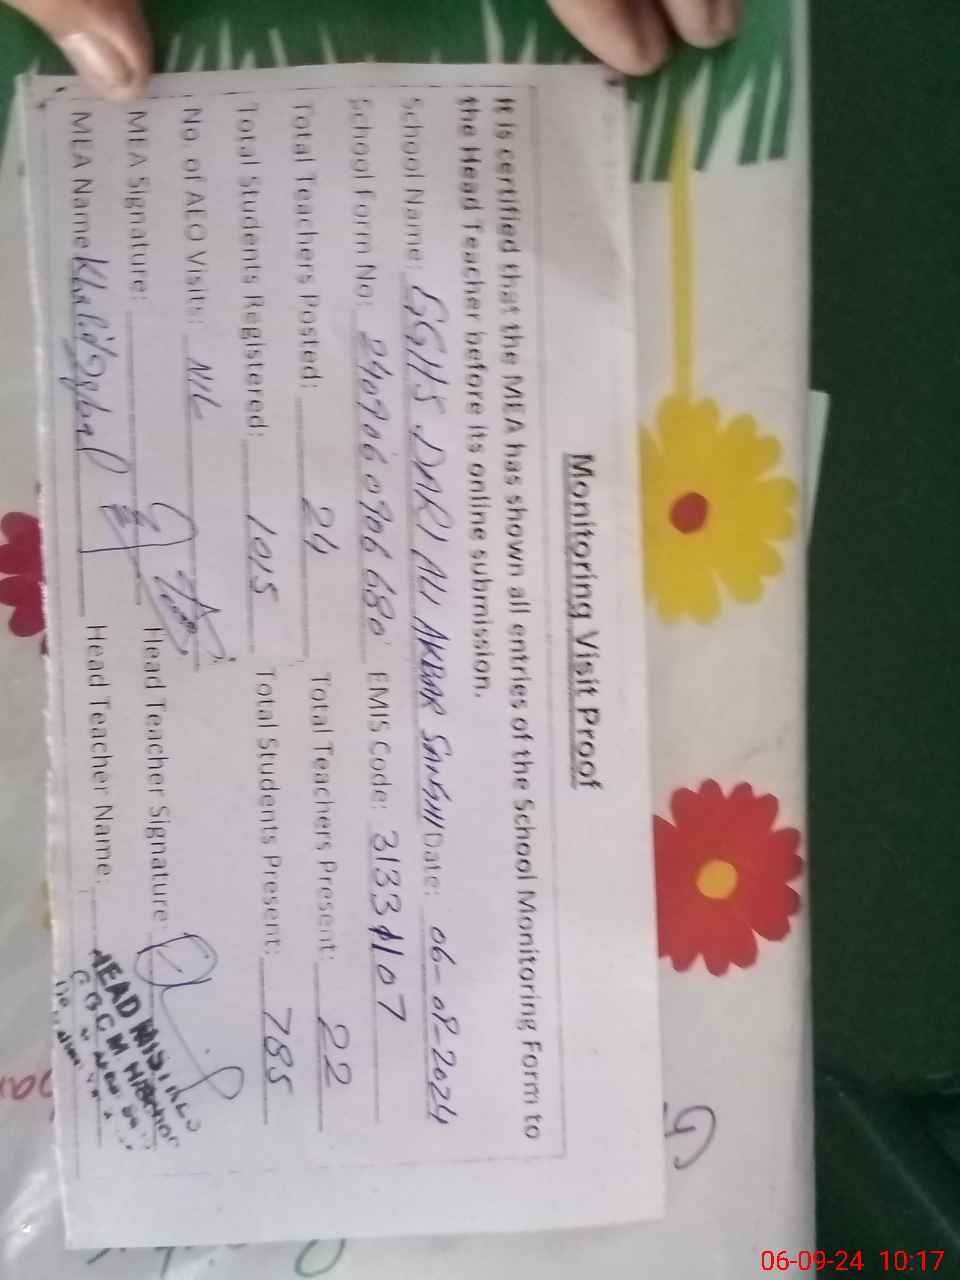 Monitoring Visit Proof
It is certified that the MEA has shown all entries of the School Monitoring Form to
the Head Teacher before its online submission.
School Name: GGHS DARI ALI AKBAR SANGHI Date: 06-09-2024
School Form No: 2409060906680 EMIS Code: 31331107
Total Teachers Posted: 24 Total Teachers Present: 22
Total Students Registered: 1015 Total Students Present: 785
No. of AEO Visits: NIL
MEA Signature: Head Teacher Signature:
MEA Name: Khalid Iqbal Head Teacher Name:
HEAD MISTRESS
06-09-24 10:17